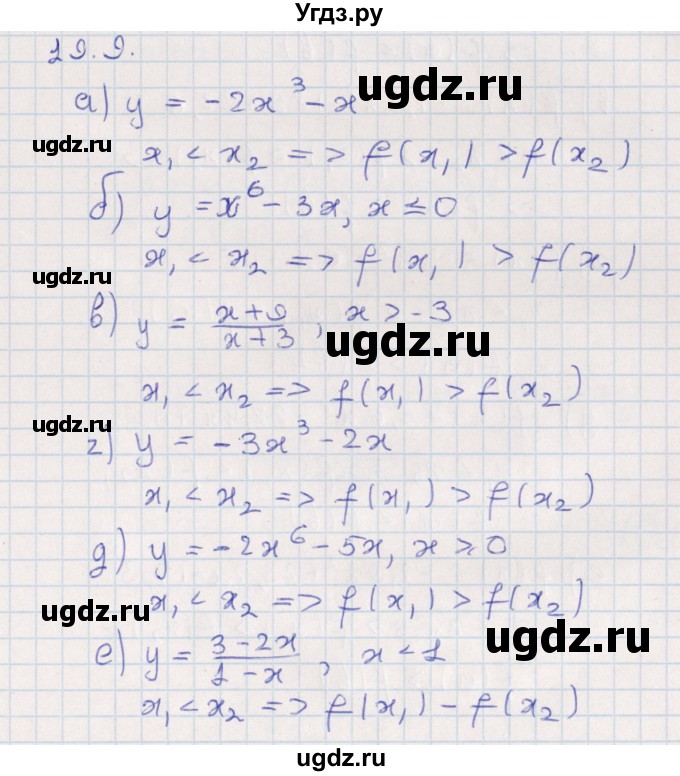 Угдз.ру
19.9.
а) y = -2x³ - x
ugdz.ru
ugdz.ru
x₁ < x₂ => f(x₁) > f(x₂)
б) y = x⁶ - 3x, x ≤ 0
x₁ < x₂ => f(x₁) > f(x₂)
ugdz.ru
в) y = \frac{x+9}{x+3}, x > -3
ugdz.ru
ugdz.ru
x₁ < x₂ => f(x₁) > f(x₂)
г) y = -3x³ - 2x
x₁ < x₂ => f(x₁) > f(x₂)
д) y = -2x⁶ - 5x, x ≥ 0
x₁ < x₂ => f(x₁) > f(x₂)
ugdz.ru
ugdz.ru
е) y = \frac{3-2x}{1-x}, x < 1
x₁ < x₂ => f(x₁) - f(x₂)
ugdz.ru
ugdz.ru